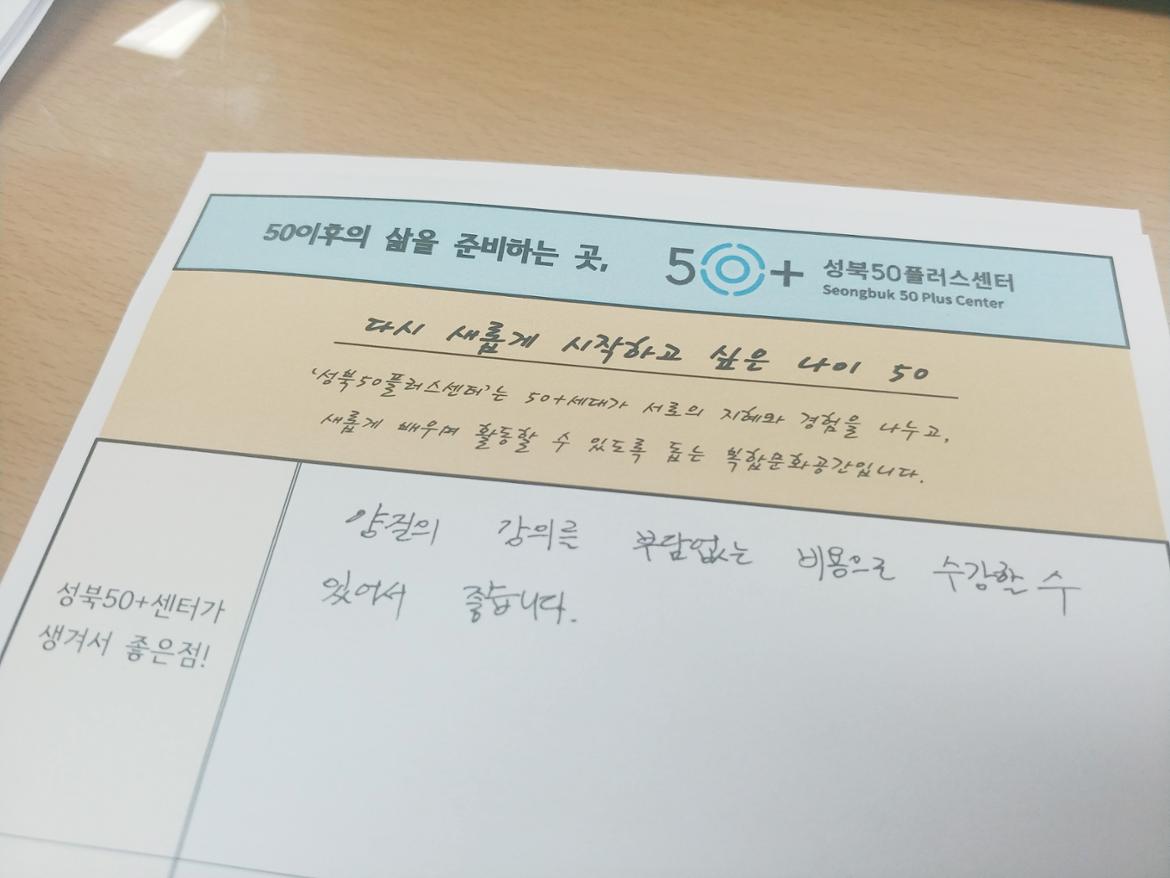 50이후의 삶을 준비하는 곳,
50+ 성북50플러스센터
Seongbuk 50 Plus Center
다시 새롭게 시작하고 싶은 나이 50
'성북50플러스센터'는 50+세대가 서로의 지혜와 경험을 나누고,
새롭게 배우며 활동할 수 있도록 돕는 복합문화공간입니다.
성북50+센터가
생겨서 좋은점!
양질의 강의를 부담없는 비용으로 수강할 수
있어서 좋습니다.